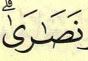 نَصَٰرَىٰۗ